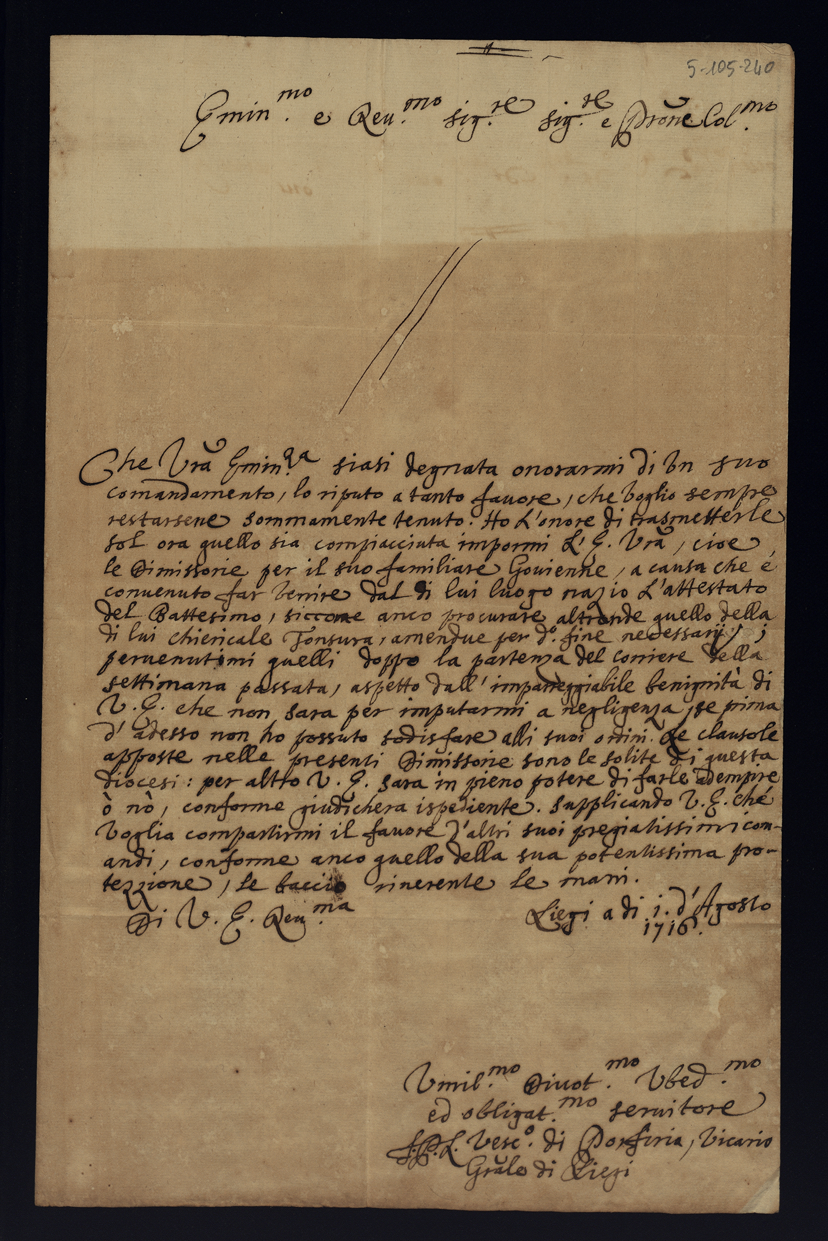 5-105-240
Emin.mo e Reu.mo sig.re sig.re e Prone Col.mo
Che Vrã Emin.za siasi degnata onorarmi di Vn suo
comandamento, lo riputo a tanto fauore, che Voglio sempre
restarsene sommamente tenuto. Ho L'onore di trasmetterle
sol ora quello sia compiacciuta impormi L'E. Vrã, cioe
le Dimissorie per il suo familiare Gouienne, a causa che é
conuenuto far Venire dal di lui luogo nazio L'attestato
del Battesimo, siccome anco procurare altronde quello della
di lui chiericale Tonsura, amendue per d.o fine necessarij;
peruenutimi quelli doppo la partenza del corriere della
settimana passata, aspetto dall' impareggiabile benignità di
V. E. che non sara per imputarmi a negligenza, se prima
d' adesso non ho possuto sodisfare alli suoi ordini. Le clausole
apposte nelle presenti Dimissorie sono le solite di questa
diocesi: per altro V. E. sara in pieno potere di farle adempire
ò nò, conforme giudichera ispediente. Supplicando V. E. ché
Voglia compartirmi il fauore d'altri suoi pregiatissimi com-
andi, conforme anco quello della sua potentissima pro-
tezzione, le baccio riuerente le mani.
Di V. E. Reu.ma Liegi a di i. d'Agosto
1716.
Vmil.mo Diuot.mo Vbed.mo
ed obligat.mo seruitore
Vesc.o di Porfiria, Vicario
Grãle di Liegi